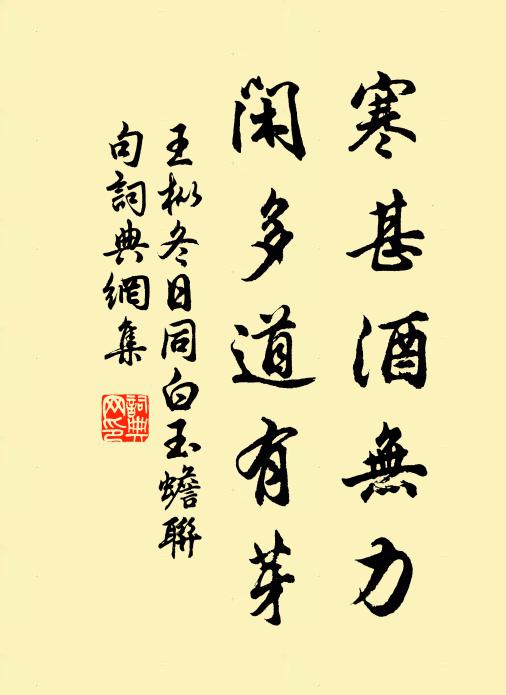 寒甚酒無力
閑多道有芽
王樅冬日同白玉蟾聯
句詞典網集
詞典
网印